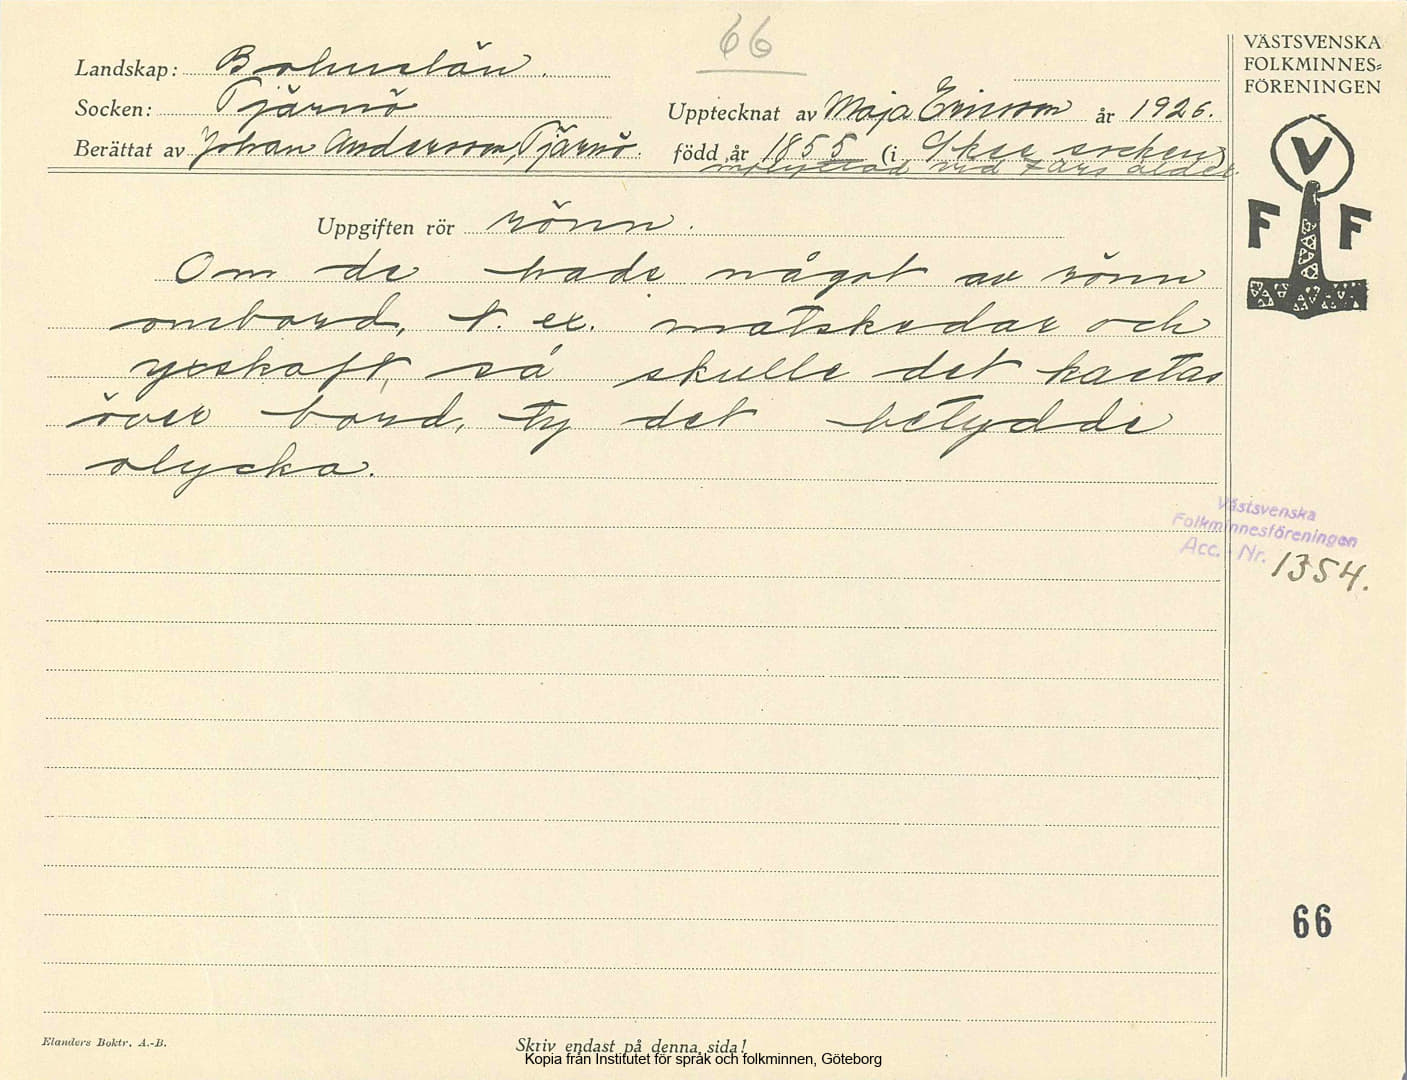 66
Landskap: Bohuslän.
Socken: Tjärnö
Upptecknat av Maja Ericson år 1926.
Berättat av Johan Andersson, Tjärnö. född år 1855 (i Skee socken)
inflyttad vid 7 års ålder.
Uppgiften rör rönn.
Om de hade något av rönn
ombord, t. ex. matskedar och
yxskaft, så skulle det kastas
över bord, ty det betydde
olycka.
VÄSTSVENSKA
FOLKMINNES=
FÖRENINGEN
V
F F
Västsvenska
Folkminnesföreningen
Acc. Nr. 1354.
66
Elanders Boktr. A.-B.
Skriv endast på denna sida!
Kopia från Institutet för språk och folkminnen, Göteborg